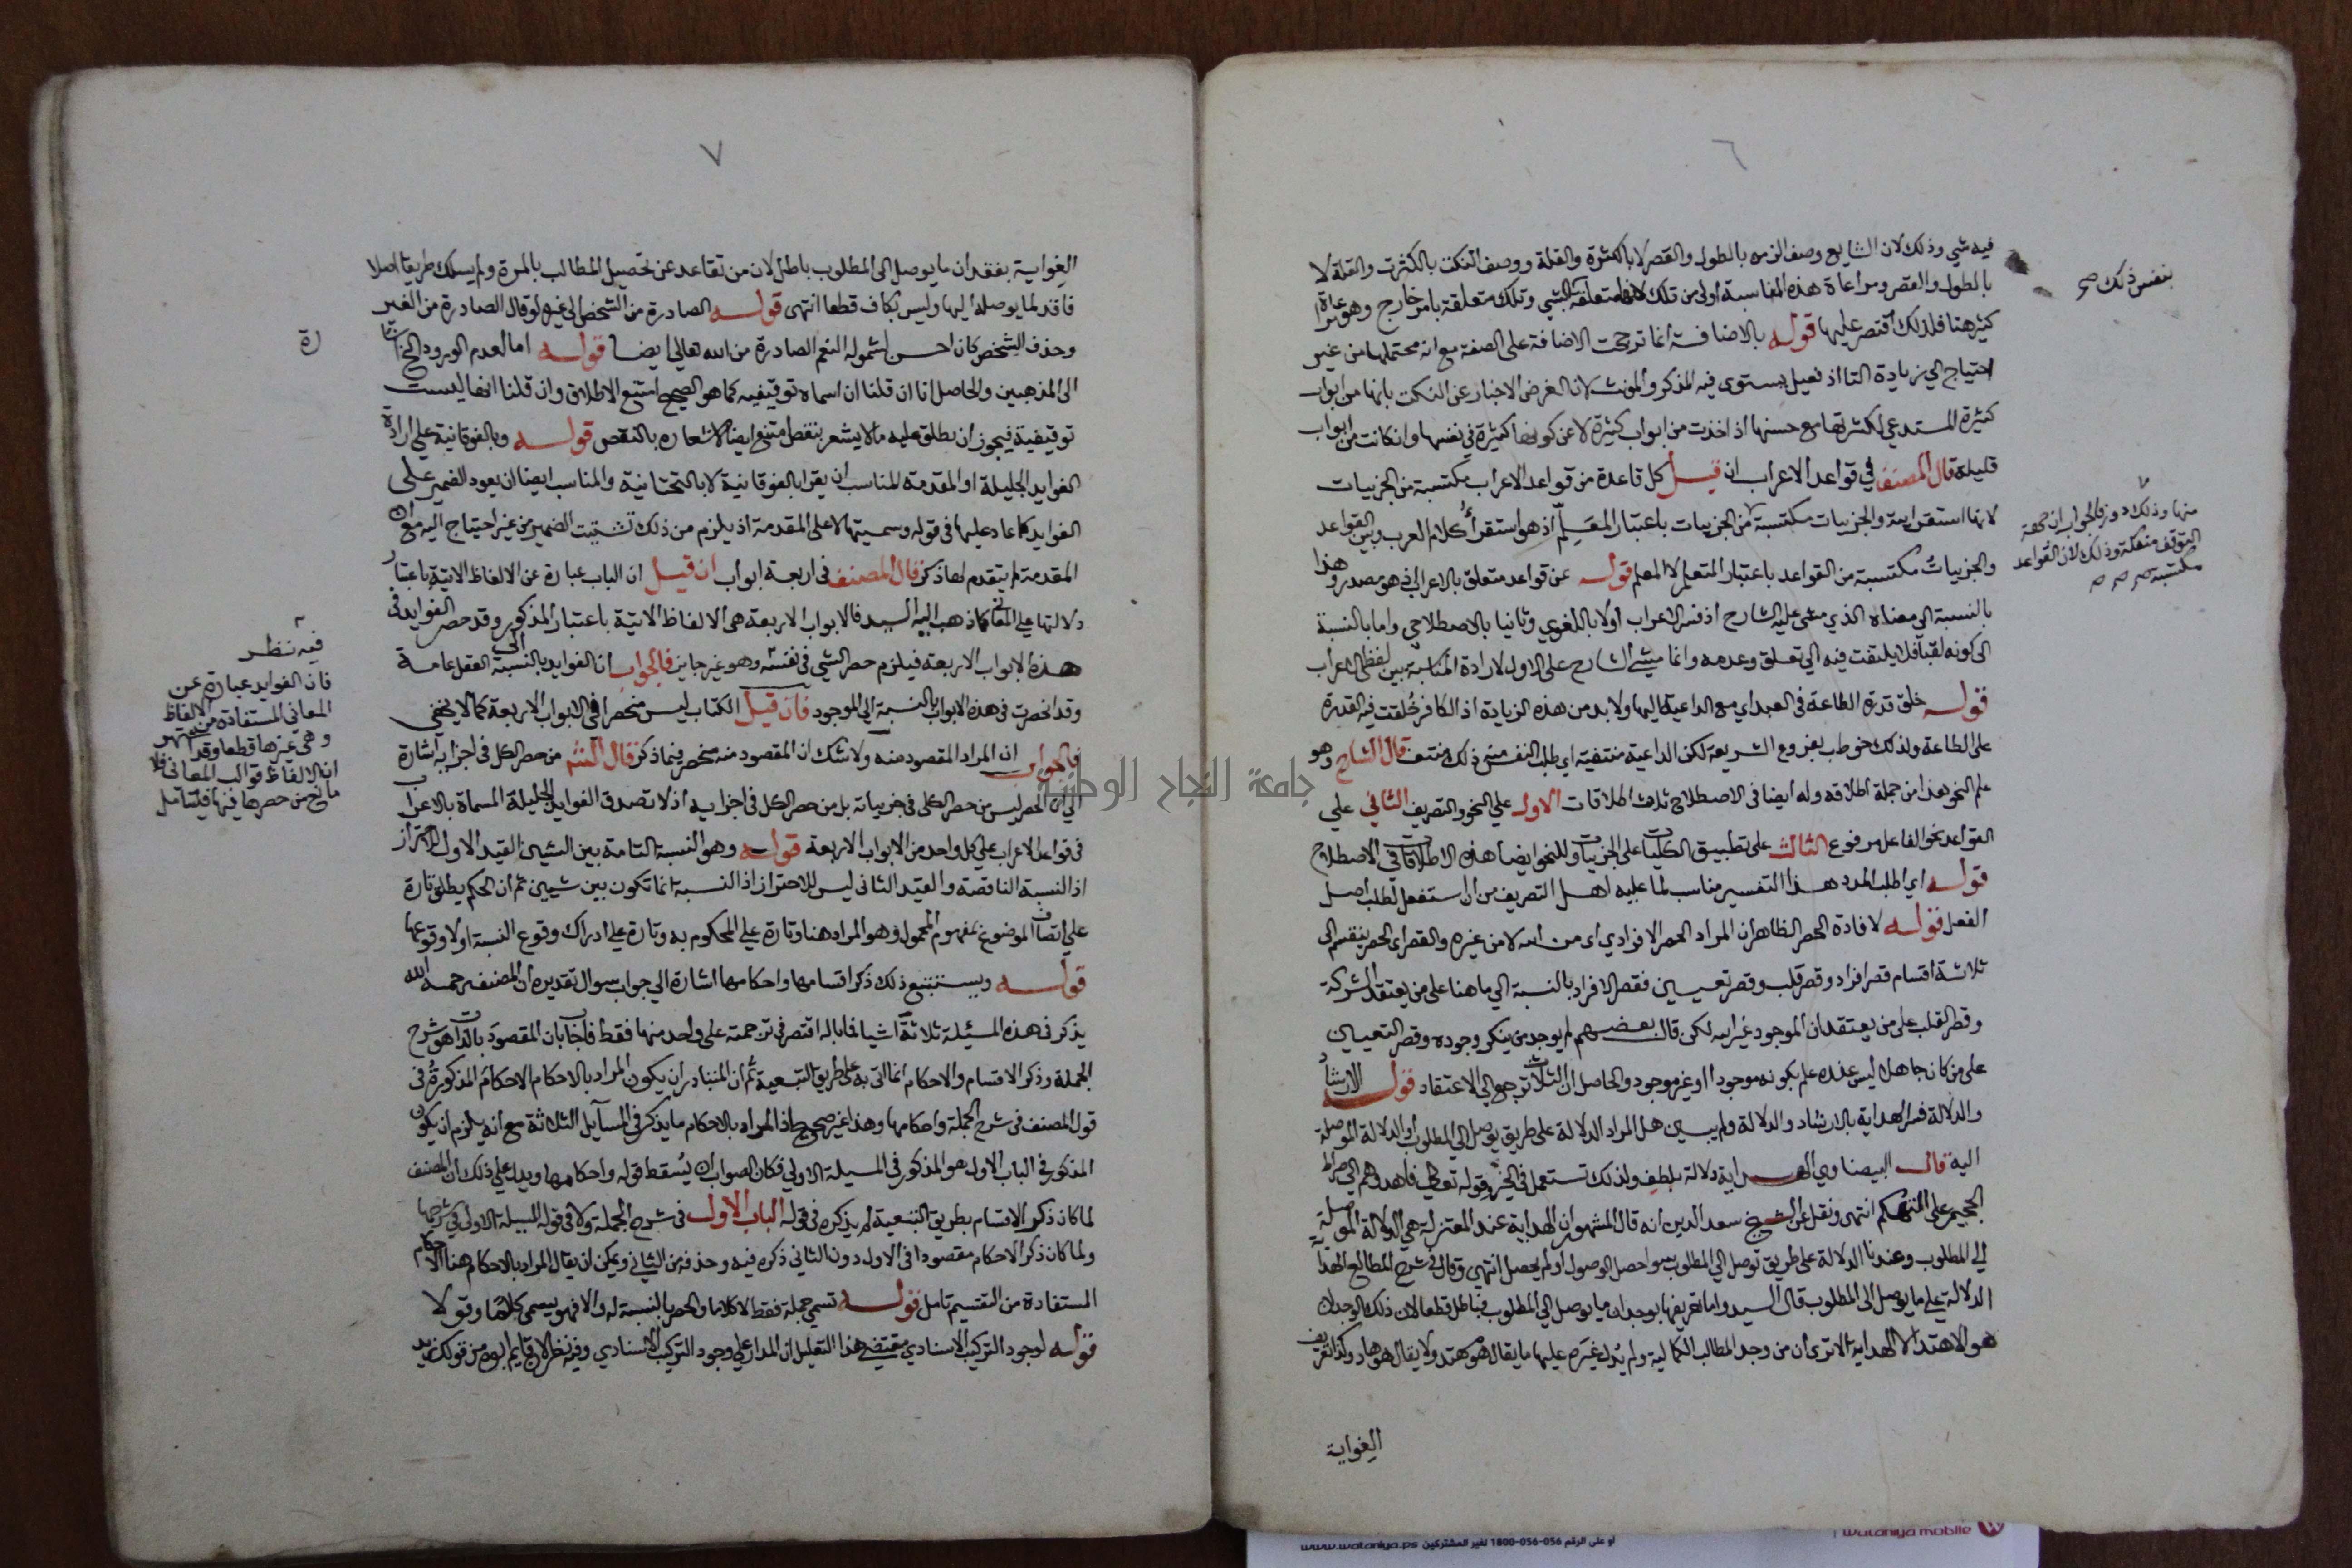 ٦
فيه شي وذلك لان الشايع وصف الزمن بالطول والقصر لا بالكثرة والقلة ووصف النكت بالكثرت والقلة لا
بالطول والقصر ومراعاة هذه المناسبة اولى من تلك لانها متعلقة بالشي وتلك متعلقة بامر خارج وهو
كثير هنا فلذلك اقتصر عليها قوله بالاضافة انما ترجحت الاضافة على الصفة مع انه محتملها من غير
احتياج الي زيادة التا اذ فعيل يستوى فيه المذكر والمونث لان الغرض الاخبار عن النكت بانها من ابواب
كثيرة المستدعي لكثرتها مع حسنها اذ اخذت من ابواب كثيرة لا عن كونها كثيرة في نفسها وان كانت من ابواب
قليلة قال المصنف في قواعد الاعراب ان قيل كل قاعدة من قواعد الاعراب مكتسبة من الجزييات
لانها استقرايية والجزييات مكتسبة من الجزييات باعتبار المعلم اذ هو استقرأ كلام العرب وبين القواعد
والجزيياتُ مكتسبة من القواعد باعتبار المتعلم لا المعلم قوله عن قواعد متعلق بالاعراب اذ هو مصدر وهذا
بالنسبة الي معناه الذي مشى عليه الشارح اذ فسر الاعراب اولا باللغوي وثانيا بالاصطلاحي واما بالنسبة
الى كونه لقبا فلا يلتفت فيه الي تعلق وعدمه وانما مشى الشارح على الاول لارادة المناسبة بين لفظي الاعراب
قوله خلق قدرة الطاعة فى العبد اي مع الداعية اليها ولا بد من هذه الزيادة اذ الكافر خُلقت فيه القدرة
على الطاعة ولذلك خوطب بفروع الشريعة لكن الداعية منتفية اي طلب النفس منه ذلك منتف قال الشارح وهو
علم النحو هذا من جملة اطلاقه وله ايضا فى الاصطلاح ثلاث اطلاقات الاول علي النحو والتصريف الثاني علي
القواعد نحو الفاعل مرفوع الثالث على تطبيق الكليات على الجزييات وللنحو ايضا هذه الاطلاقات في الاصطلاح
قوله اي اطلب المدد هذا التفسير مناسب لما عليه اهل التصريف من ان استفعل لطلب اصل
الفعل قوله لافادة الحصر الظاهر ان المراد الحصر الافرادي اى من الله لا من غيره والقصر اى الحصر ينقسم الى
ثلاثة اقسام قصر افراد وقصر قلب وقصر تعيين فقصر الافراد بالنسبة الي ما هنا على من يعتقد الشركة
وقصر القلب على من يعتقد ان الموجود غير الله لكن قال بعضهم لم يوجد من ينكر وجوده وقصر التعيين
على من كان جاهلا ليس عنده علم بكونه موجودا او غير موجود والحاصل ان الثلاث ترجع الي الاعتقاد قوله الارشاد
والدلالة فسر الهداية بالارشاد والدلالة ولم يبين هل المراد الدلالة على طريق يوصل الي المطلوب او الدلالة الموصلة
اليه قال البيضاوي الهداية دلالة بلطف ولذلك تستعمل في الخير وقوله تعالي فاهدوهم الي صراط
الجحيم على التهكم انتهى ونقل عن الشيخ سعد الدين انه قال المشهور ان الهداية عند المعتزلة هي الدلالة الموصلة
الي المطلوب وعندنا الدلالة على طريق توصل الي المطلوب سوا حصل الوصول او لم يحصل انتهى وقال فى شرح المطالع الهداية
الدلالة علي ما يوصل الى المطلوب قال السيد واما تعريفها بوجدان ما يوصل الي المطلوب فباطل قطعا لان ذلك الوجدان
هو الاهتدا لا الهداية الا ترى ان من وجد المطالب الكمالية ولم يدل غيره عليها ما يقال هو مهتد ولا يقال هو هاد وكذا تعريف
الغواية
بنفس ذلك صح
منها وذلك دور فالجواب ان جهة
التوقف منفكة وذلك لان القواعد
مكتسبة صح صح صح
٧
الغواية بفقدان ما يوصل الى المطلوب باطل لان من تقاعد عن تحصيل المطالب بالمرة ولم يسلك طريقا اصلا
فاقد لما يوصله اليها وليس بكاف قطعا انتهى قوله الصادرة من الشخص الي غيره لو قال الصادرة من الغير
وحذف الشخص كان احسن لشموله النعم الصادرة من الله تعالي ايضا قوله اما لعدم الورود الخ
الى المذهبين والحاصل انا ان قلنا ان اسماه توقيفيه كما هو الصحيح امتنع الاطلاق وان قلنا انها ليست
توقيفية فيجوز ان يطلق عليه ما لا يشعر بنقص امتنع ايضا لاشعاره بالنقص قوله وبالفوقانية علي ارادة
الفوايد الجليلة او المقدمة المناسب ان يقرا بالفوقانية لا بالتحتانية والمناسب ايضا ان يعود الضمير على
الفوايد كما عاد عليها فى قوله وسميتها لا على المقدمة اذ يلزم من ذلك تشتيت الضمير من غير احتياج اليه مع ان
المقدمة لم يتقدم لها ذكر قال المصنف فى اربعة ابواب ان قيل ان الباب عبارة عن الالفاظ الاتية باعتبار
دلالتها علي المعاني كما ذهب اليه السيد فالابواب الاربعة هى الالفاظ الاتية باعتبار المذكور وقد حصر الفوايد فى
هذه الابواب الاربعة فيلزم حصر الشي فى نفسه وهو غير جايز فالجواب ان الفوايد بالنسبة الى العقل عامة
وقد انحصرت فى هذه الابواب بالنسبة الي الموجود فان قيل الكتاب ليس منحصرا فى الابواب الاربعة كما لا يخفى
فالجواب ان المراد المقصود منه ولا شك ان المقصود منه منحصر فيما ذكر قال الشم من حصر الكل فى اجزايه اشارة
الي ان الحصر ليس من حصر الكلى فى جزيياته بل من حصر الكل فى اجزايه اذ لا تصدق الفوايد الجليلة المسماة بالاعراب
فى قواعد الاعراب علي كل واحد من الابواب الاربعة قوله وهو النسبة التامة بين الشيين القيد الاول احتراز
اذ النسبة الناقصة والقيد الثانى ليس للاحتراز اذ النسبة انما تكون بين شيين ثم ان الحكم يطلق تارة
علي اتصاف الموضوع بمفهوم المحمول وهو المراد هنا وتارة علي المحكوم به وتارة علي ادراك وقوع النسبة اولا وقوعها
قوله ويستتبع ذلك ذكر اقسامها واحكامها اشارة الي جواب سوال تقديره ان المصنف رحمه الله
يذكر فى هذه المسئلة ثلاثة اشيا فما باله اقتصر فى ترجمته على واحد منها فقط فاجاب بان المقصود بالذات هو شرح
الجملة وذكر الاقسام والاحكام انما اتى به على طريق التبعية ثم ان المتبادر ان يكون المراد بالاحكام الاحكامَ المذكورةَ فى
قول المصنف فى شرح الجملة واحكامها وهذا غير صحيح اذ المراد بالاحكام ما يذكر فى المسآيل الثلاثة مع انه يلزم ان يكون
المذكور في الباب الاول هو المذكور فى المسيلة الاولي فكان الصواب ان يُسقط قوله واحكامها ويدل علي ذلك ان المصنف
لما كان ذكر الاقسام بطريق التبعية لم يذكره فى قوله الباب الاول فى شرح الجملة ولا فى قوله المسيلة الاولى في شرحها
ولما كان ذكر الاحكام مقصودا فى الاول دون الثاني ذكره فيه وحذفه من الثاني ويمكن ان يقال المراد بالاحكام هنا الاحكام
المستفادة من التقسيم تامل قوله تسمي جملة فقط لا كلاما والحصر بالنسبة له والا فهو يسمى كلما وقولا
قوله لوجود التركيب الاسنادي مقتضى هذا التعليل ان المدار علي وجود التركيب الاسنادي وفيه نظر لان قايم ابوه من قولك زيد
فيه نظر
فان الفوايد عبارة عن
المعاني المستفادة من الالفاظ
وهى غيرها قطعا وقد اشتهر
ان الالفاظ قوالب المعانى فلا
مانع من حصرها فيها فليتامل
جامعة النجاح الوطنية
wataniya mobile
www.wataniya.ps او على الرقم 056-056-1800 لغير المشتركين